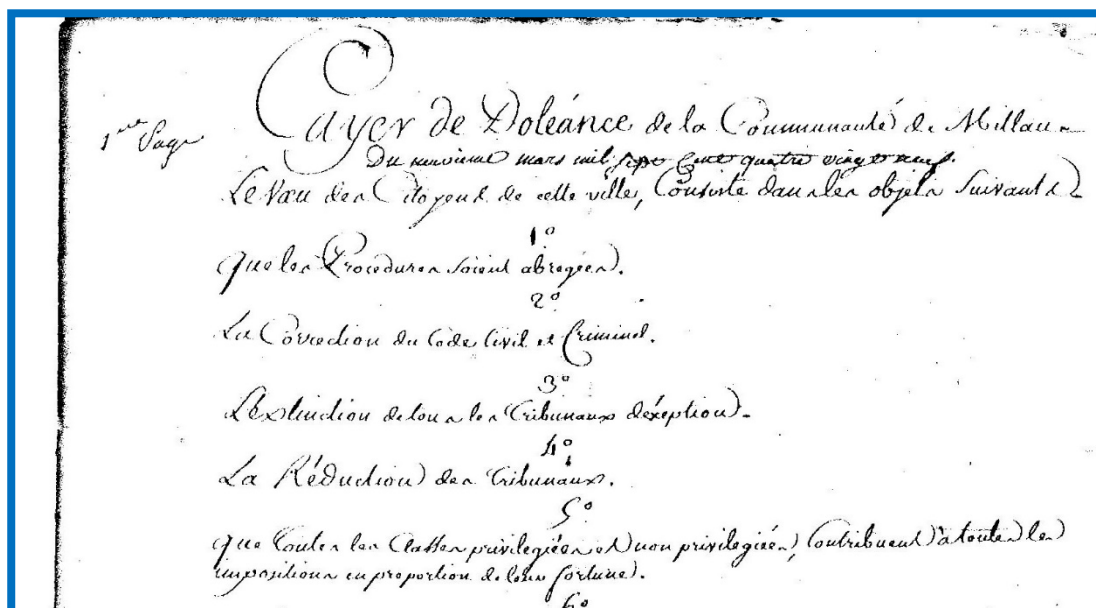 1ere Page
Cayer de Doléance de la Communauté de Millau
Du neuvieme mars mil sept cent quatre vingt neuf.
Le Vœu des Citoyens de cette ville, Consiste dans les objets Suivants
1°
que les Procedures soient abregées.
2°
La Correction du Code Civil et Criminel.
3°
L'extinction de tous les Tribunaux d'éxeption.
4°
La Réduction des Tribunaux.
5°
que toutes les Classes privilegiées et non privilegiées, Contribuent à toutes les
impositions en proportion de leur fortune.
6°